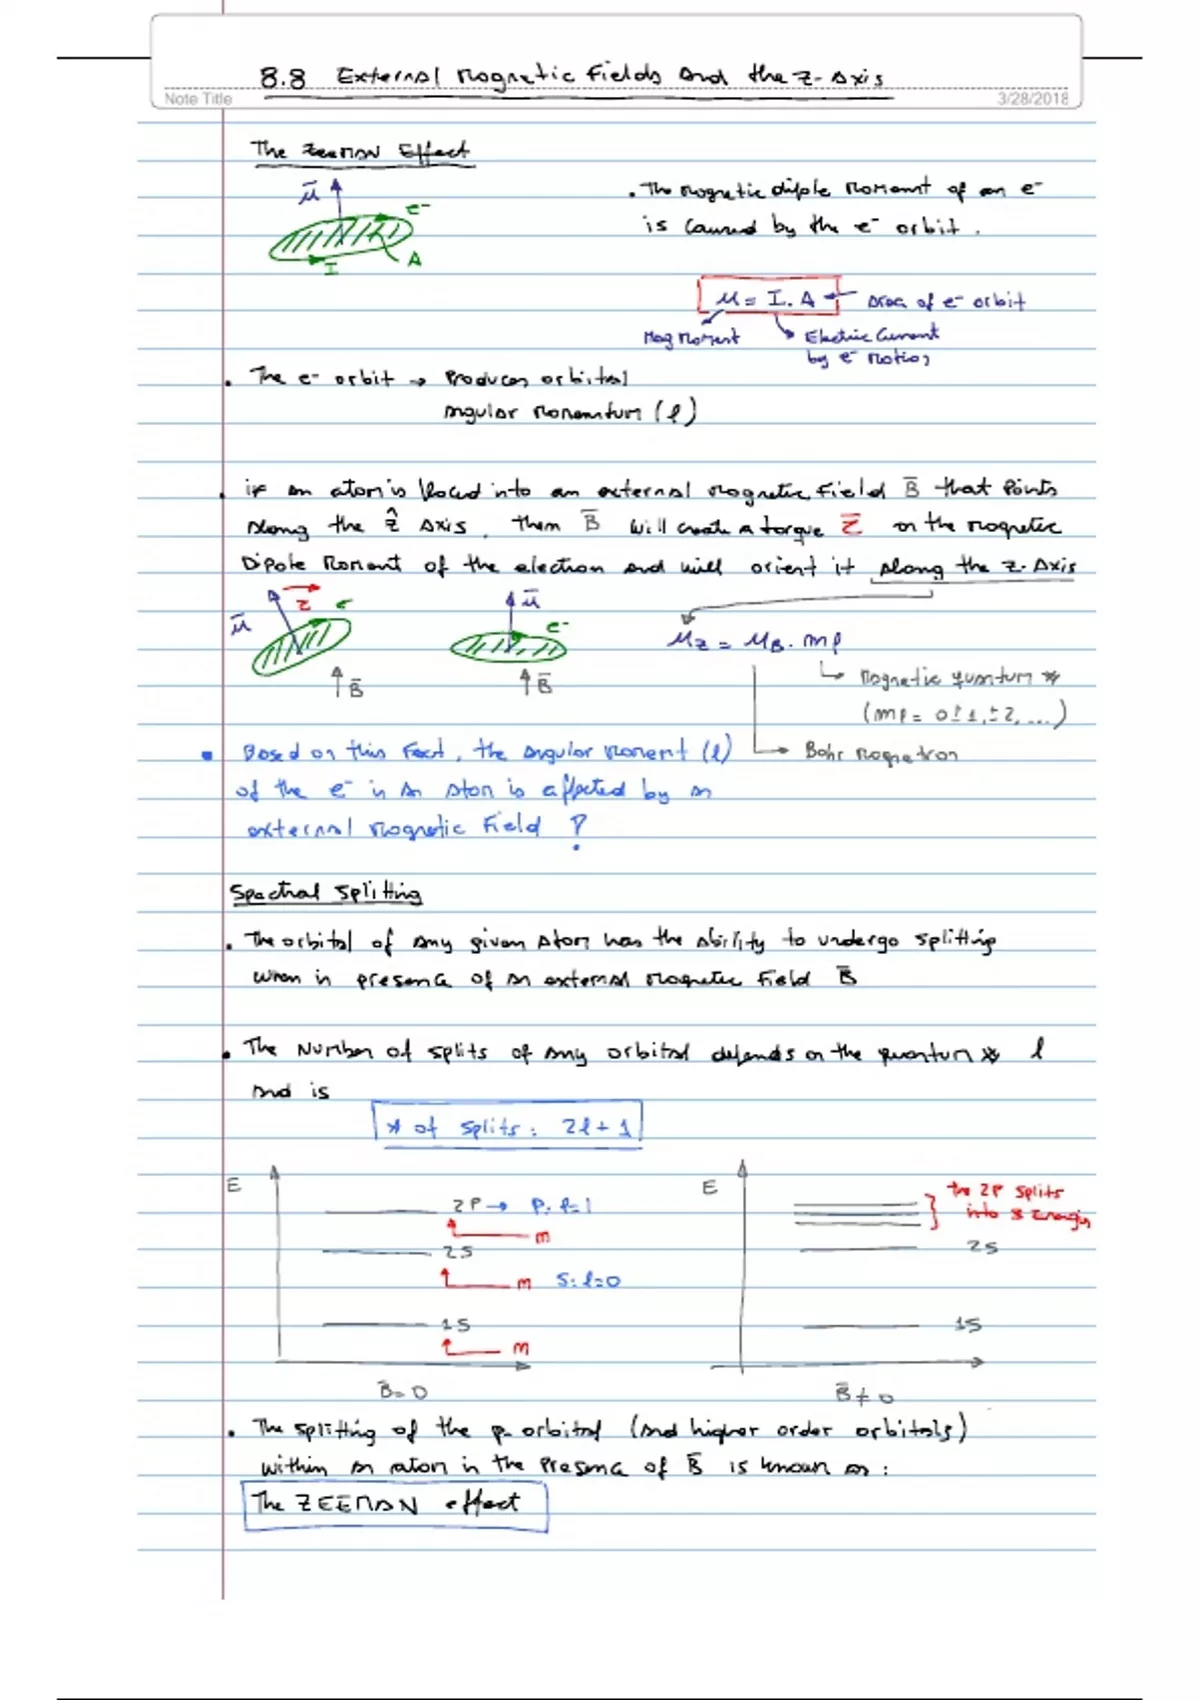 8.8 External Magnetic Fields and the z-Axis
Note Title
3/28/2018
The Zeeman Effect
μ̄
e⁻
I
A
. The magnetic dipole moment of an e⁻
is caused by the e⁻ orbit.
μ = I.A ← Area of e⁻ orbit
Mag moment
Electric Current
by e⁻ motion
. The e⁻ orbit → Produces orbital
angular momentum (l)
. if an atom is placed into an external magnetic field B̄ that points
along the ẑ axis, then B̄ will create a torque τ̄ on the magnetic
Dipole moment of the electron and will orient it along the z-Axis
μ̄
τ
e⁻
B̄
μ̄
e⁻
B̄
μz = μB. ml
Magnetic quantum *
(ml = 0 ± 1, ± 2, ...)
Bohr magnetron
. Based on this fact, the angular moment (l)
of the e⁻ in an atom is affected by an
external magnetic field ?
Spectral Splitting
. The orbital of any given atom has the ability to undergo splitting
when in presence of an external magnetic field B̄
. The Number of splits of any orbital depends on the quantum * l
and is
* of splits: 2l + 1
E
2P → P: l=1
m
2S
m S: l=0
1S
m
B̄ = 0
E
the 2P splits
into 3 Energies
2S
1S
B̄ ≠ 0
. The splitting of the p-orbital (and higher order orbitals)
within an atom in the presence of B̄ is known as:
The ZEEMAN effect